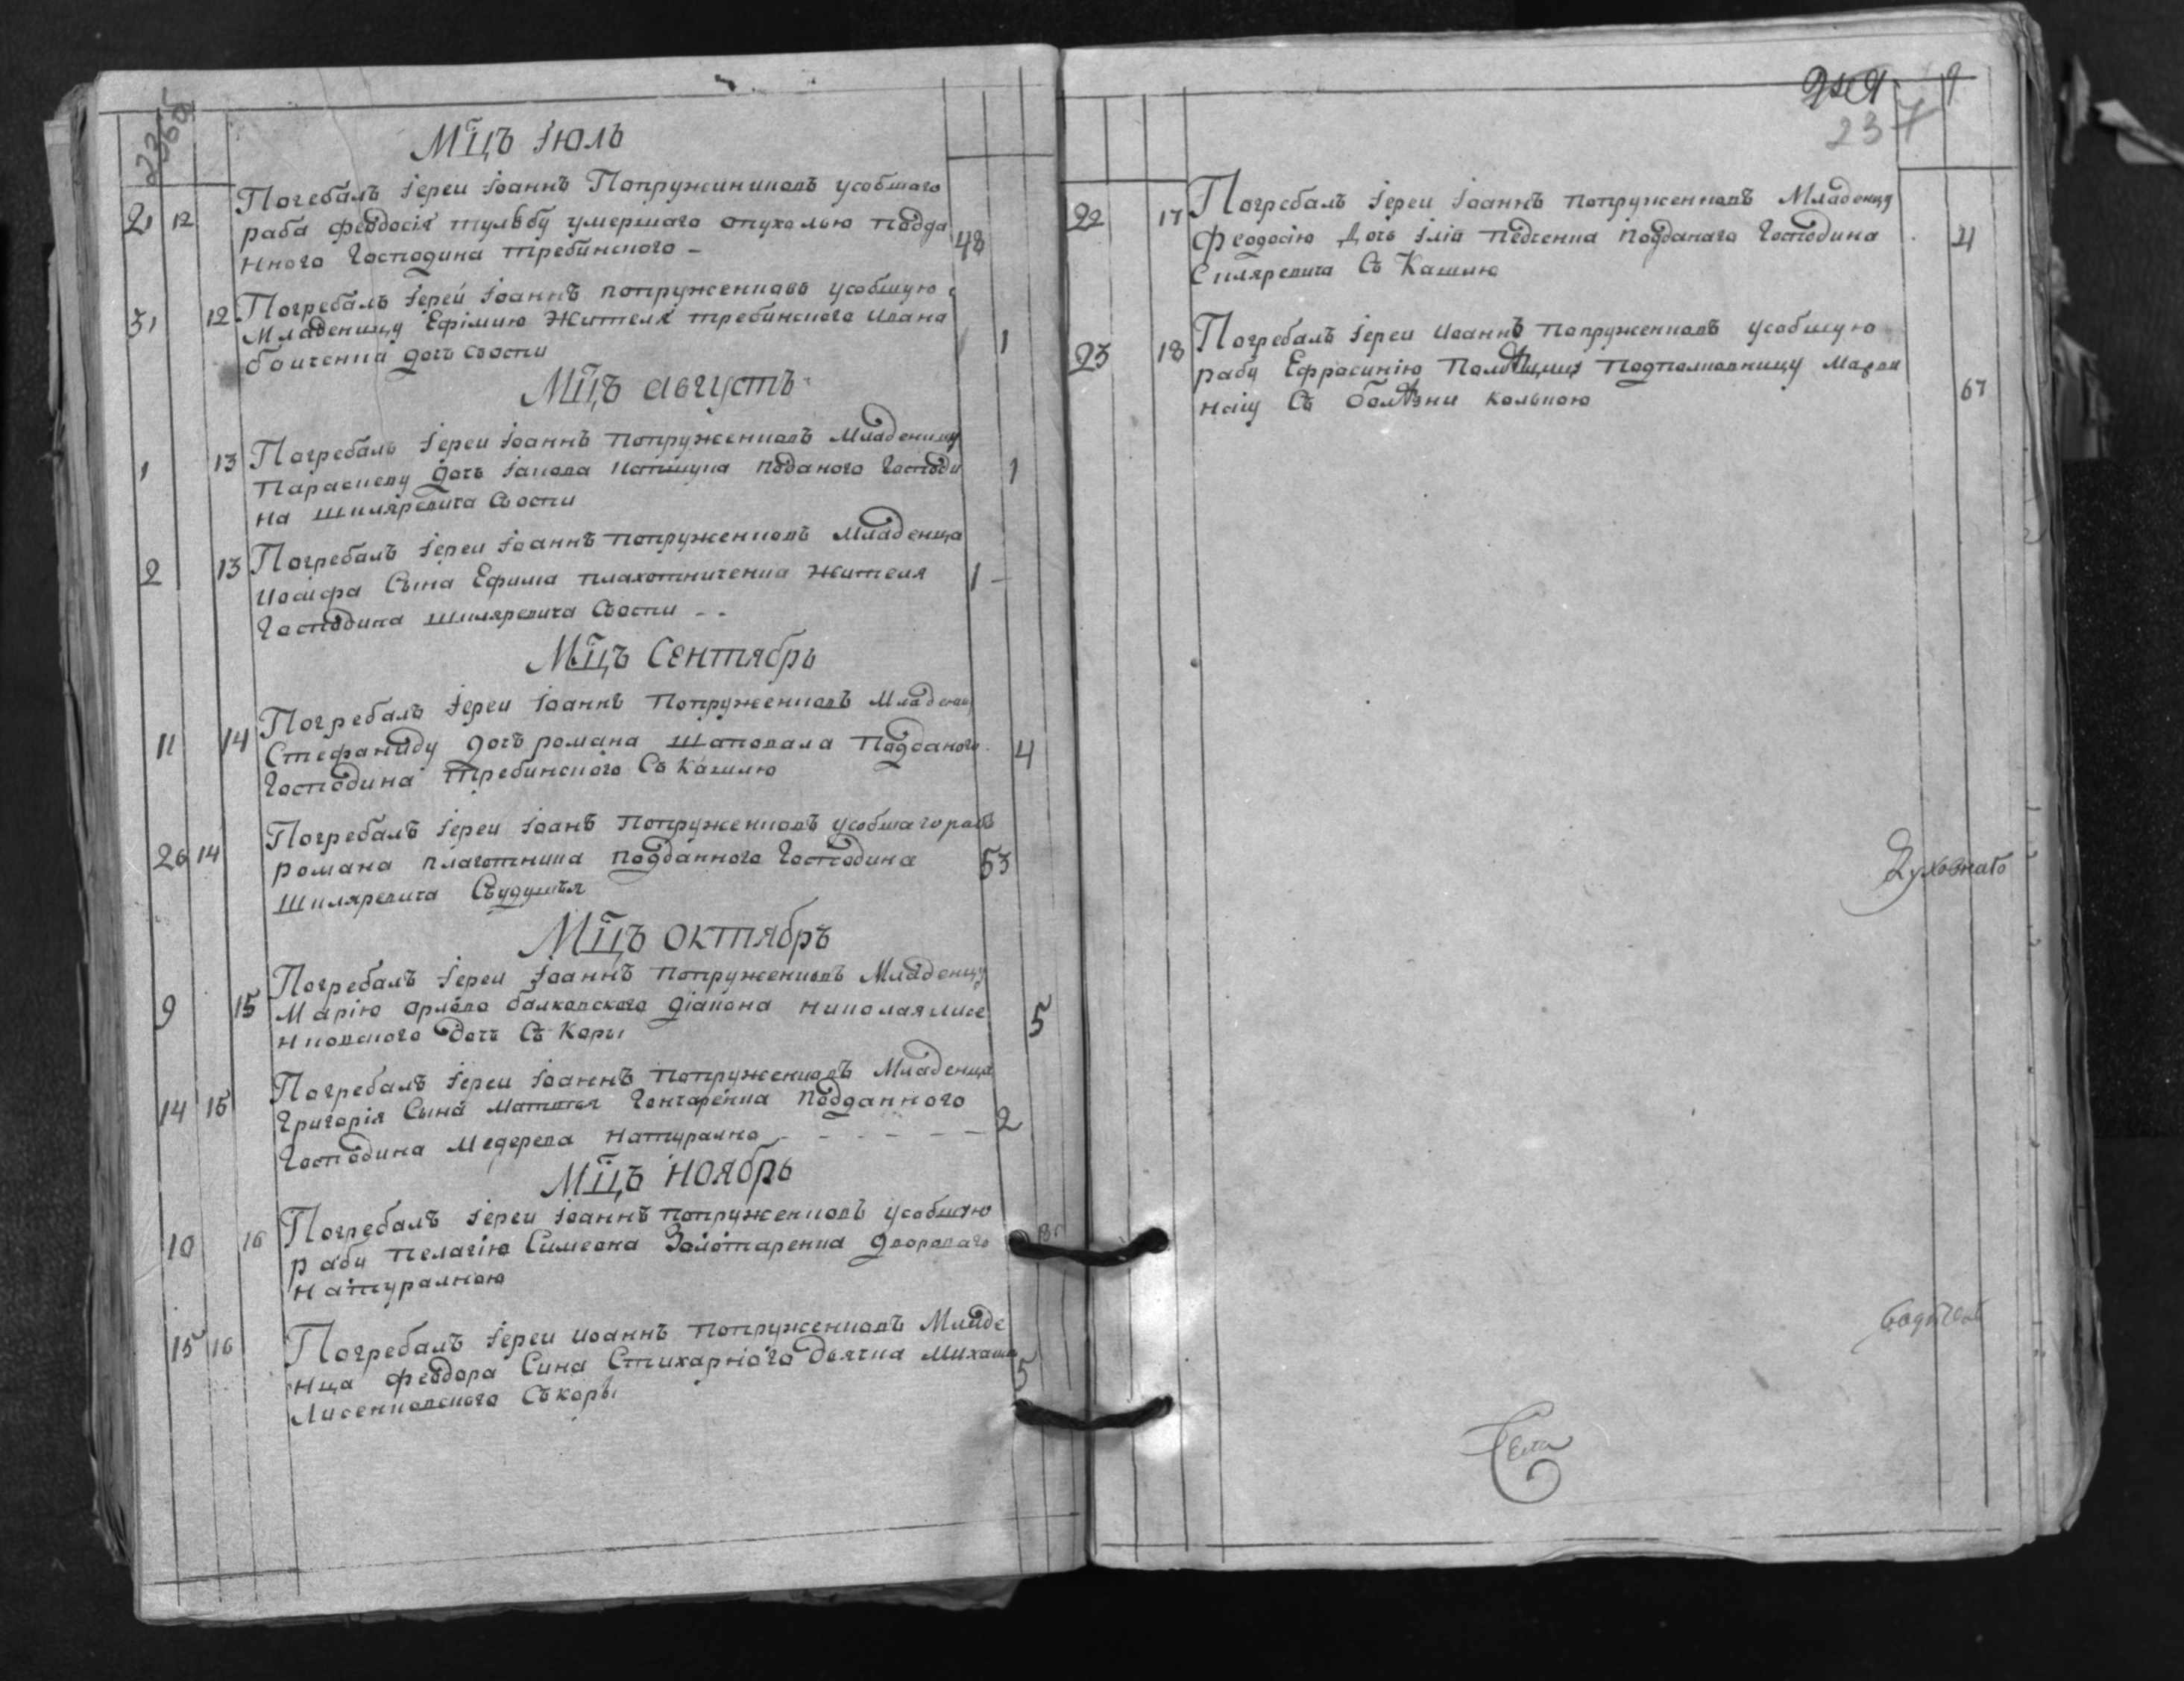 Мцъ Іюль
21 12 Погебалъ Іереи Іоаннъ Попружиниковъ усобшаго
раба феодосія тульбу умершаго опухолью подда
нного Господина требинского 48
31 12 Погребалъ Іерей Іоаннъ попруженковъ усобшую
Младеницу Ефімию Жителя требинского Ивана
дочъ съоспи 1
Мцъ августъ
1 13 Погребалъ Іереи Іоаннъ попруженковъ Младеницу
Параскеву дочъ Іакова поданого Господи
на шкляревича съоспи 1
2 13 Погребалъ Іереи Іоаннъ попруженковъ Младенца
Иосифа Сына Ефима плахотниченка жителя
Господина шкляревича съоспи 1
Мцъ Сентябрь
11 14 Погребалъ Іереи Іоаннъ Попруженковъ Младениц
Стефаниду дочъ романа шаповалаПодданого
Господина требинского Съ Кашлю 4
26 14 Погребалъ Іереи Іоанъ Попруженковъ усобшаго раба
романа плаготника подданного Господина
шкляревича Съудушъя 53
Мцъ октябръ
9 15 Погребалъ Іереи Іоаннъ попруженковъ Младенцу
Марію орлово балковского діакона николая лисе
нковского дочъ Съ Коры 5
14 15 Погребалъ Іереи Іоаннъ попруженковъ Младенца
Григорія Сына Матвея Гончаренка Подданного
Господина Медерева натурално 2
Мцъ ноябрь
10 16 Погребалъ Іереи Іоаннъ попруженковъ усобшую
рабу пелагію Симеона Золотаренка двороваго
натуралною
15 16 Погребалъ Іереи Иоаннъ попруженковъ Младе
нца феодора Сина Стихарного дьячка Михаила
Лисенковского Съ коры 5
237
22 17 Погребалъ Іереи Іоаннъ попруженковъ Младенця
феодосію Дочь Іліи педченка подданаго Господина
Скляревича Съ Кашлю 4
23 18 Погребалъ Іереи Иоаннъ попруженковъ усобшую
рабу Ефросинію Подполковницу
Съ болѣзни колькою 67
Духовнаго